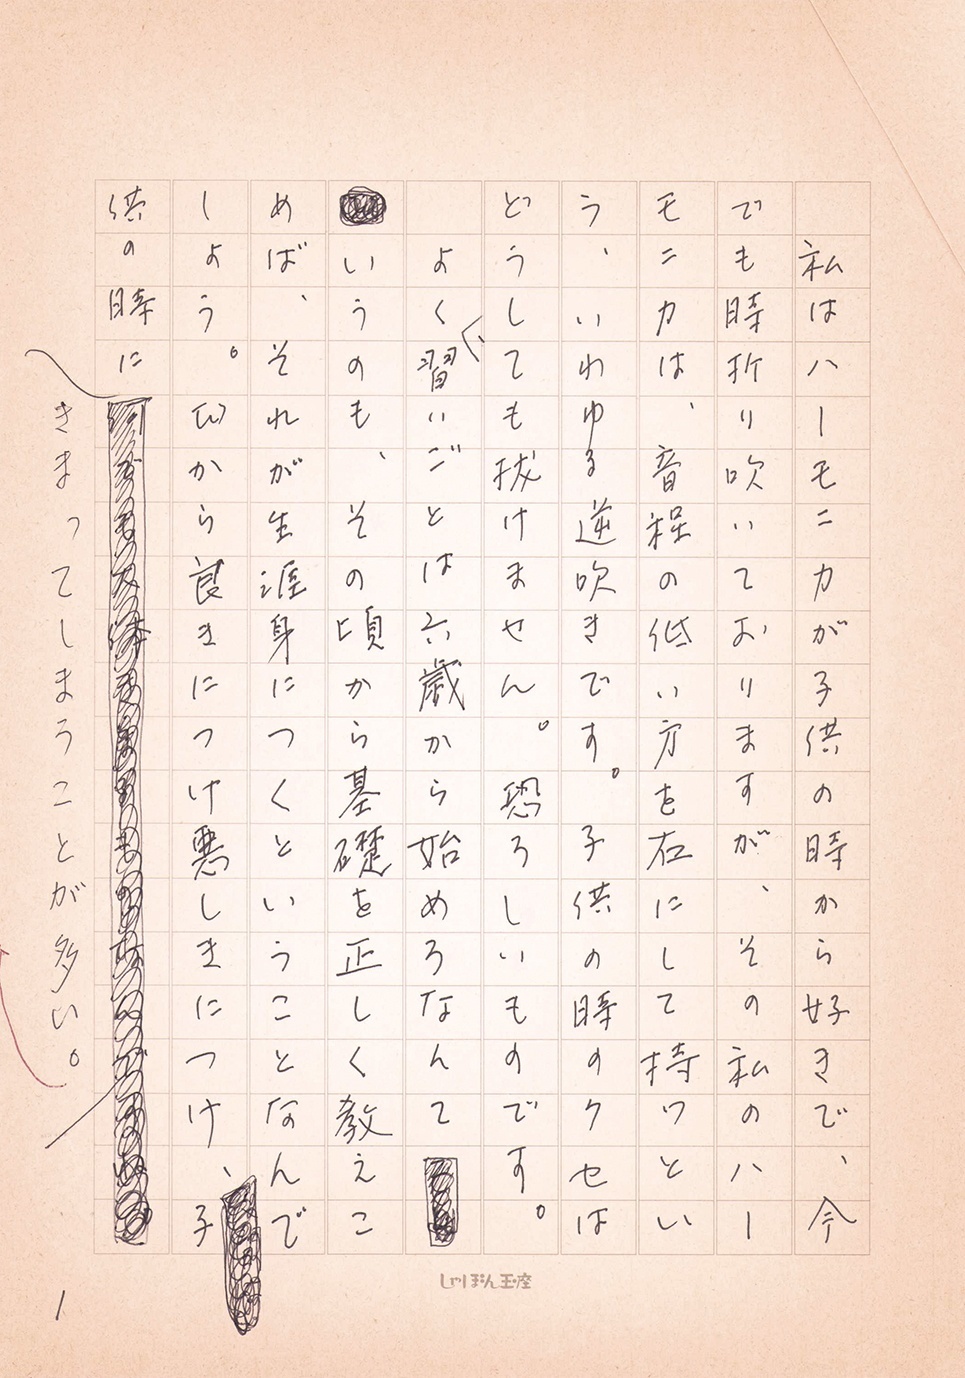 私はハーモニカが子供の時から好きで、今
でも時折り吹いておりますが、その私のハー
モニカは、音程の低い方を右にして持つとい
う、いわゆる逆吹きです。子供の時のクセは
どうしても抜けません。恐ろしいものです。
よく習いごとは六歳から始めろなんて
いうのも、その頃から基礎を正しく教えこ
めば、それが生涯身につくということなんで
しょう。ひから良きにつけ悪しきにつけ、子
供の時に
きまってしまうことが多い。
しゃぼん玉座
1